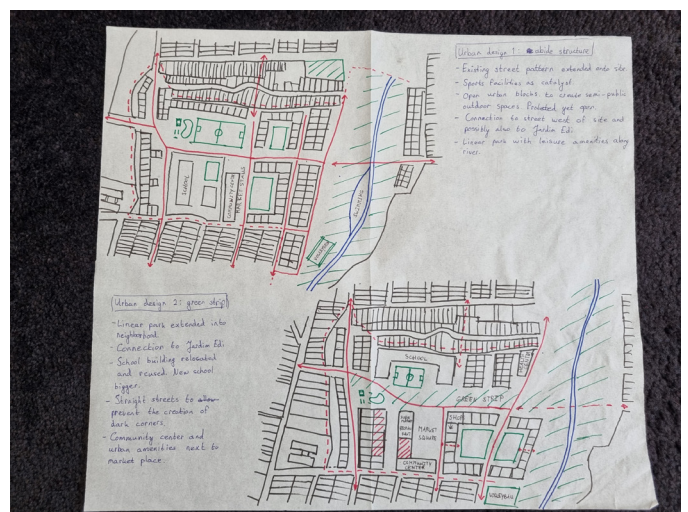 Urban design 1: abide structure
- Existing street pattern extended onto site
- Sports Facilities as catalyst
- Open urban blocks to create semi-public
outdoor spaces Protected yet open.
- Connection to street west of site and
possibly also to Jardim Edi
- Linear park with leisure amenities along
river.
SCHOOL
COMMUNITY CENTRE
MARKET STALLS
Urban design 2: green strip
- Linear park extended into
neighborhood.
- Connection to Jardim Edi
School building relocated
and reused. New school
bigger.
- Straight streets to
prevent the creation of
dark corners
- Community center and
urban amenities next to
market place.
SCHOOL
GREEN STRIP
MARKET
SQUARE
SHOP
COMMUNITY
CENTER